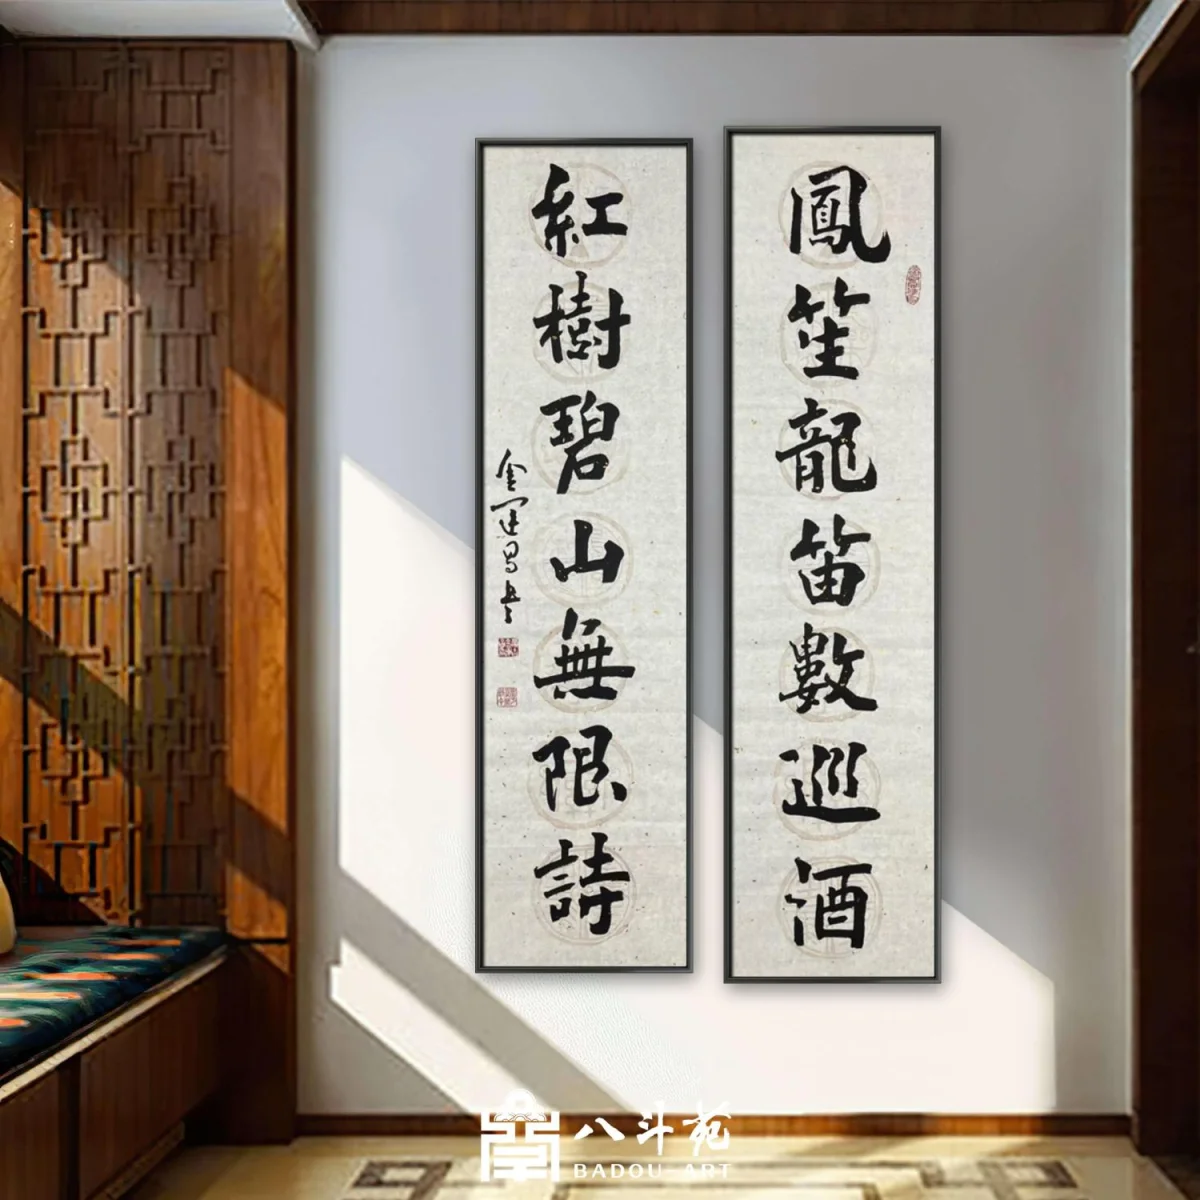 鳳笙龍笛數巡酒
紅樹碧山無限詩
八斗苑
BADOU-ART